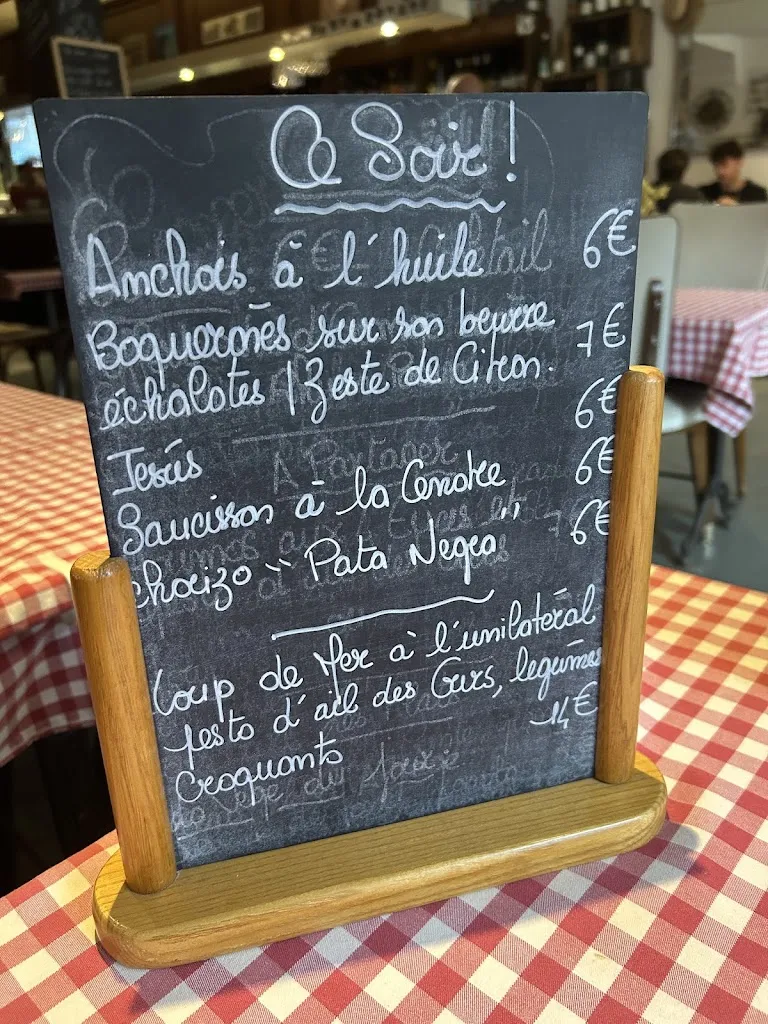 Ce Soir !
Anchois à l'huile 6€
Boquerones sur son beurre
échalotes / Zeste de Citron. 7€
Jesús 6€
Saucisson à la Cendre 6€
chorizo "Pata Negra" 6€
Loup de Mer à l'unilatéral
pesto d'ail des Ours, legumes
Croquants 14€